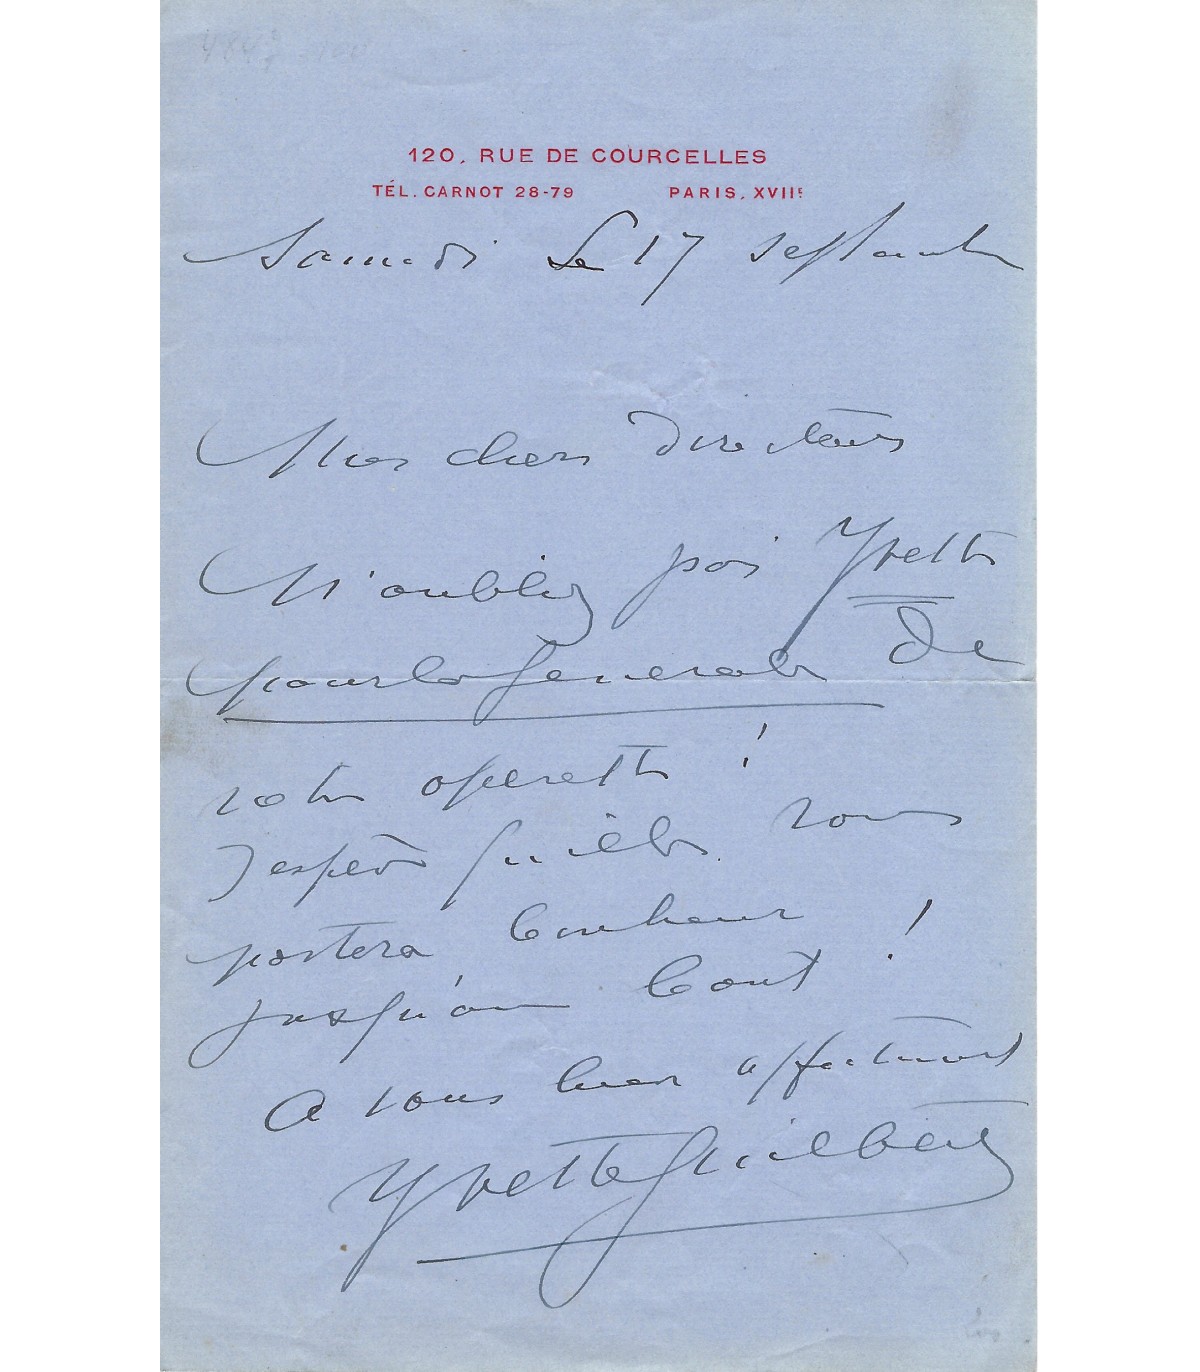 120, RUE DE COURCELLES
TÉL. CARNOT 28-79 PARIS, XVIIE
Samedi le 17 septembre
Mes chers directeurs
N'oubliez pas Yvette
pour la generale de
votre operette !
J'espère qu'elle vous
portera bonheur
jusqu'au bout !
A vous bien affectueust
Yvette Guilbert